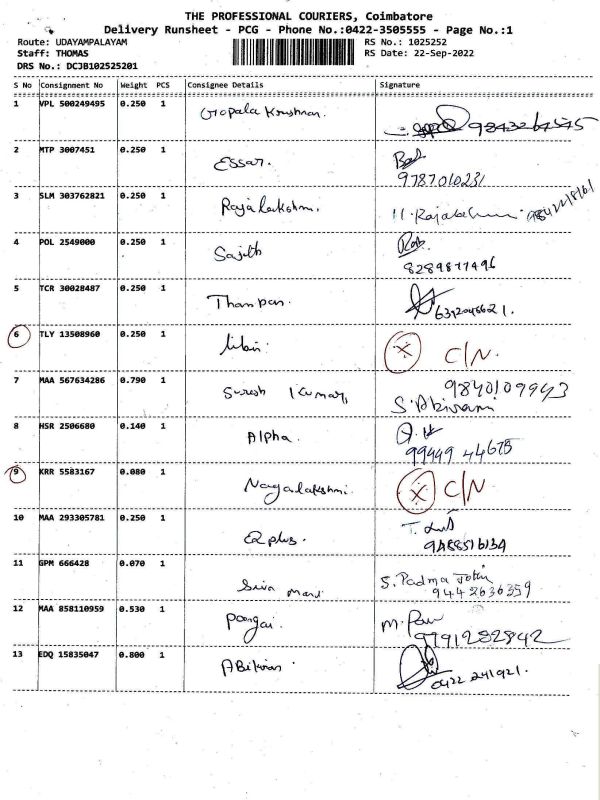 THE PROFESSIONAL COURIERS, Coimbatore
Delivery Runsheet - PCG - Phone No.:0422-3505555 - Page No.:1
Route: UDAYAMPALAYAM RS No.: 1025252
Staff: THOMAS RS Date: 22-Sep-2022
DRS No.: DCJB102525201
S No Consignment No Weight PCS Consignee Details Signature
1 VPL 500249495 0.250 1 Gopala Krishnan.
2 MTP 3007451 0.250 1 Essar.
9787010231
3 SLM 303762821 0.250 1 Rajalakshmi.
4 POL 2549000 0.250 1 Sajith
8289877496
5 TCR 30028487 0.250 1 Thampan.
6 TLY 13508960 0.250 1 X C/N.
7 MAA 567634286 0.790 1 Suresh Kumar, 9840109943
S. Abirami
8 HSR 2506680 0.140 1 Alpha.
99449 44675
9 KRR 5583167 0.080 1 Nagalakshmi. X C/N
10 MAA 293305781 0.250 1 E2 plus.
9488516134
11 GPM 666428 0.070 1 Siva Mani S. Padma
9442636359
12 MAA 858110959 0.530 1 Pongai.
9791282842
13 EDQ 15835047 0.800 1
0422 241921.